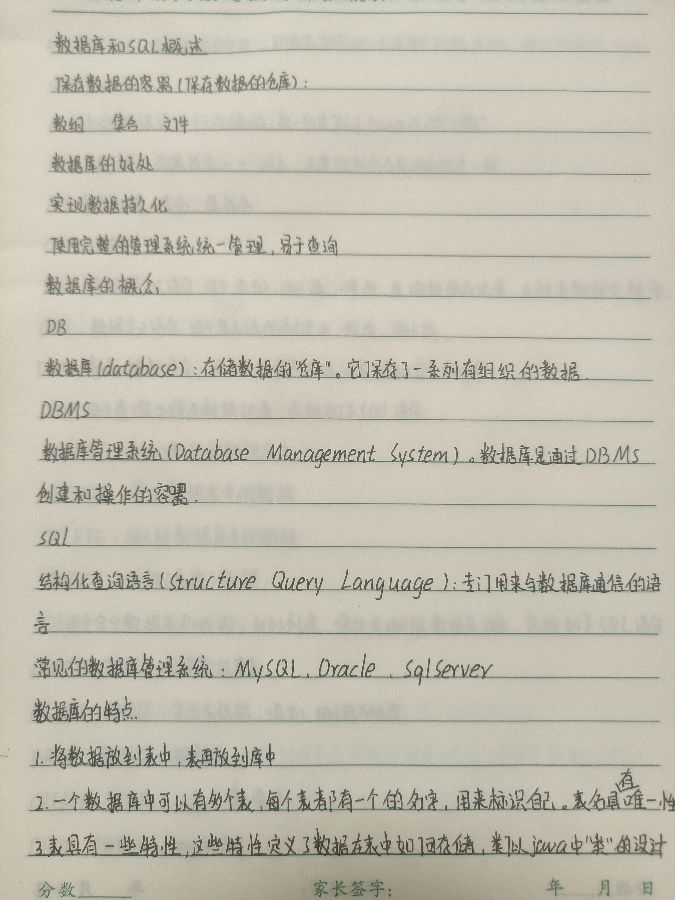 数据库和SQL概述
保存数据的容器(保存数据的仓库):
数组 集合 文件
数据库的好处
实现数据持久化
使用完整的管理系统统一管理,易于查询
数据库的概念
DB
数据库(database):存储数据的"仓库"。它保存了一系列有组织的数据.
DBMS
数据库管理系统(Database Management System)。数据库是通过DBMS
创建和操作的容器.
SQL
结构化查询语言(Structure Query Language):专门用来与数据库通信的语
言
常见的数据库管理系统:MySQL、Oracle、SqlServer
数据库的特点.
1.将数据放到表中,表再放到库中
2.一个数据库中可以有多个表,每个表都有一个的名字,用来标识自己。表名具有唯一性
3.表具有一些特性,这些特性定义了数据在表中如何存储,类似java中"类"的设计
分数
家长签字: 年 月 日